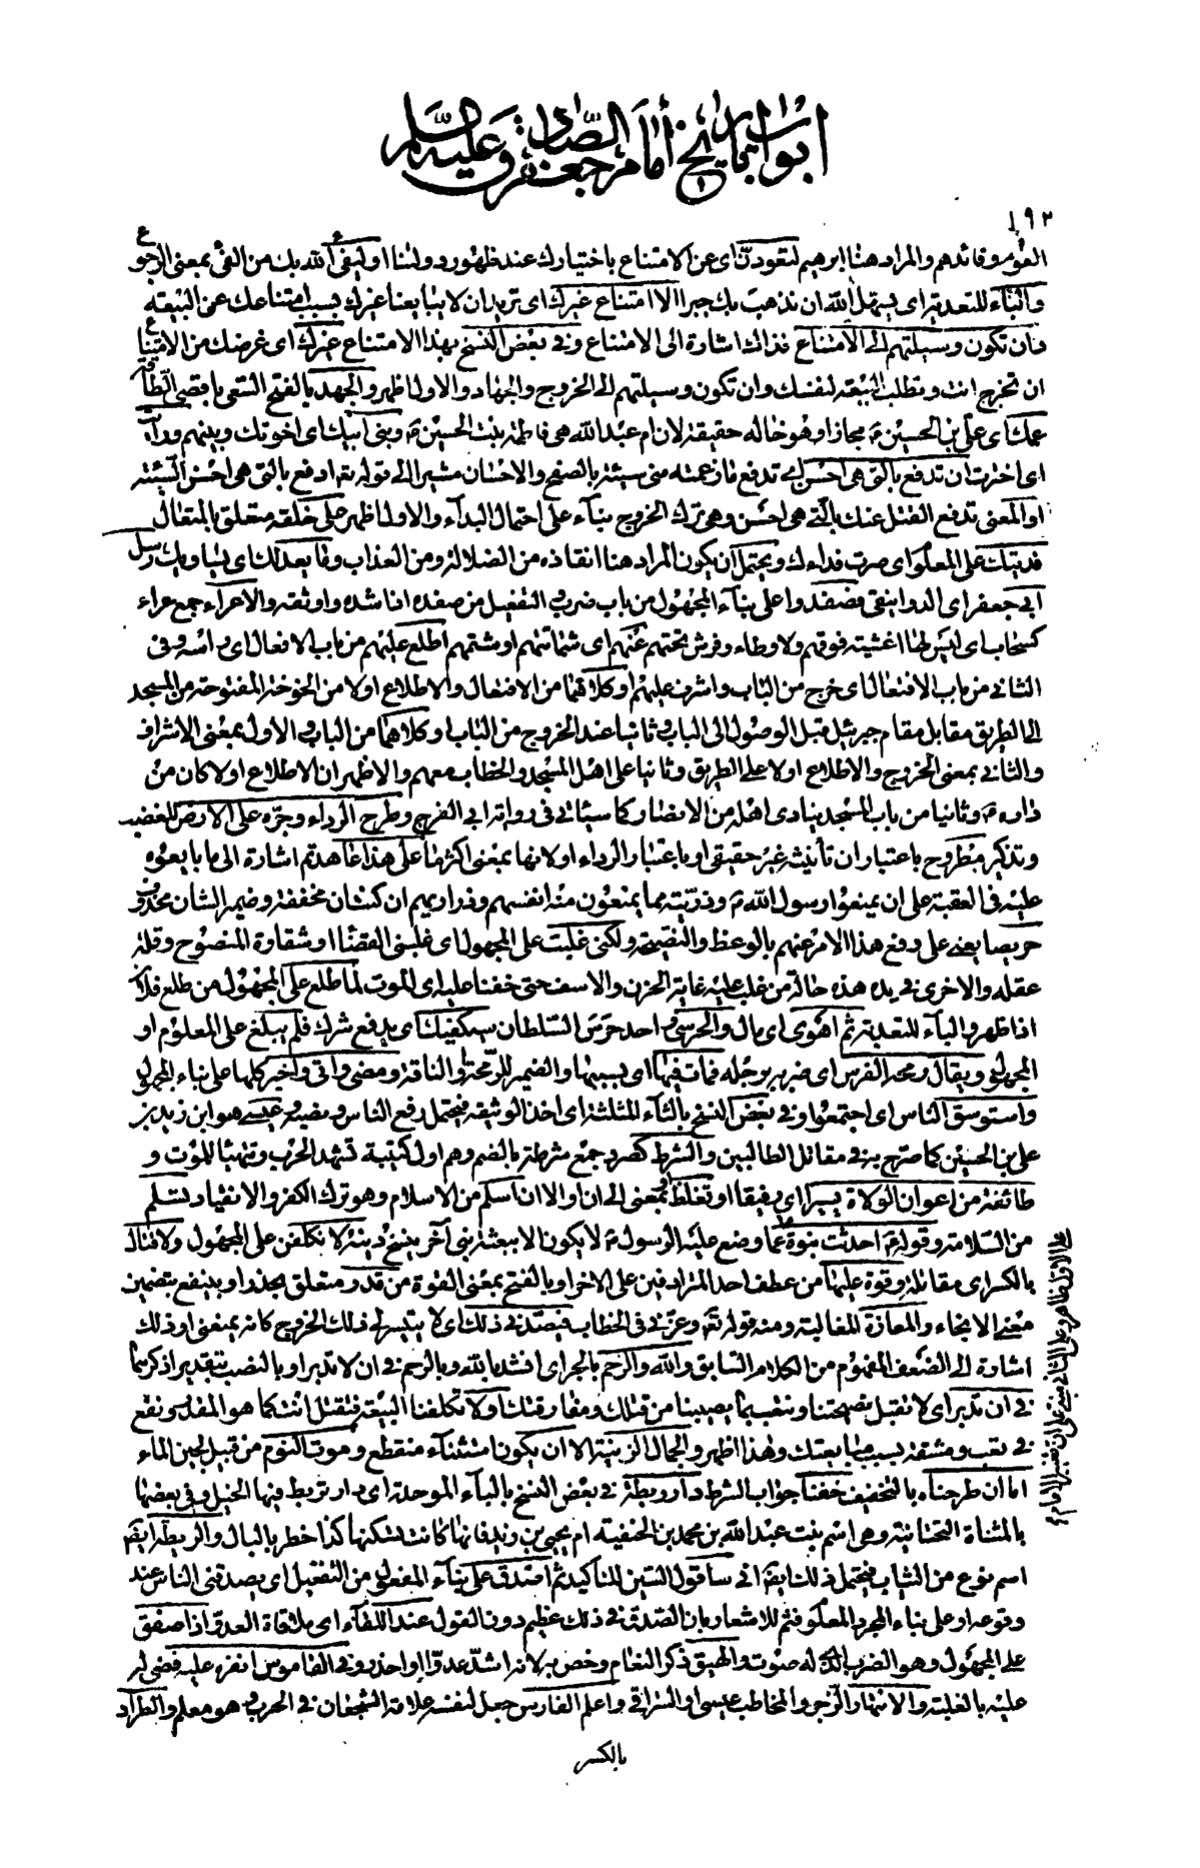 ابواب تاريخ امام جعفر الصادق عليه السلام
١٩٢
القوم وقائدهم والمراد هنا ابرهيم لتعودنّ اى عن الامتناع باختيارك عند ظهور دولتنا او ليفئ الله بك من الفئ بمعنى الرجوع
والباء للتعدية اى يسهل الله ان نذهب بك جبرا الا امتناع غيرك اى تريدان لا يبايعنا غيرك بسبب امتناعك عن البيعة
فان تكون وسيلتهم الى الامتناع فذاك اشارة الى الامتناع وفى بعض النسخ بهذا الامتناع غيرك اى غرضك من الامتناع
ان تخرج انت وتطلب البيعة لنفسك وان تكون وسيلتهم الى الخروج والجهاد والاول اظهر والجهد بالفتح السعى باقصى الطاقة
عمك اى على بن الحسين ع مجازا وهو خاله حقيقة لان ام عبد الله هى فاطمة بنت الحسين ع وبنى ابيك اى اخوتك وبينهم ورآه
اى اخترت ان تدفع بالتى هى احسن اى تدفع ما زعمته منى سيئة بالصفح والاحسان مشيرا الى قوله تع ادفع بالتى هى احسن السيئة
او المعنى تدفع القتل عنك بالتى هى احسن وهى ترك الخروج بناء على احتمال البداء والاول اظهر على خلقه متعلق بالمتعال
فديتك على المعلوم اى صرت فداءك ويحتمل ان يكون المراد هنا انقاذه من الضلالة ومن العذاب وما يعدلك اى يساويك رسل
ابى جعفر اى الدوانيقى وصفدوا على بناء المجهول من باب ضرب او التفعيل من صفده اذا شده واوثقه والاعراء جمع عراء
كسحاب اى ليس لها اغشية فوقهم ولا وطاء وفرش تحتهم عنهم اى شماتتهم او شتمهم اطلع عليهم من باب الافعال اى راسه وفى
الثانى من باب الافتعال اى خرج من الباب واشرف عليهم او كلاهما من الافتعال والاطلاع اولا من الخوخة المفتوحة من المسجد
الى الطريق مقابل مقام جبرئيل قبل الوصول الى الباب وثانيا عند الخروج من الباب او كلاهما من الباب والاول بمعنى الاشراف
والثانى بمعنى الخروج والاطلاع اولا على الطريق وثانيا على اهل المسجد والخطاب معهم والاظهر ان الاطلاع اولا كان من
داره ع وثانيا من باب المسجد ينادى اهله من الانصار كما سيأتى فى رواية ابى الفرج وطرح الرداء وجره على الارض للغضب
وتذكير مطروح باعتبار ان تأنيثه غير حقيقى او باعتبار الرداء او لانها بمعنى اكثرها على هذا عاهدتم اشارة الى ما بايعوه
عليه فى العقبة على ان يمنعوا رسول الله ص وذريته مما يمنعون منه انفسهم وذراريهم ان كنت ان مخففة وضمير الشان محذوف
حريصا يعنى على دفع هذا الامر عنهم بالوعظ والنصيحة ولكنى غلبت على المجهول اى غلبنى القضا او شقاوة المنصوح وقلة
عقله والاخرى فى يده هذه حالة من غلب عليه غاية الحزن والاسف حتى خفنا عليه اى الموت لما طلع على المجهول من طلع فلان
اذا ظهر والباء للتعدية ثم اهوى اى مال والحرسى واحد حرس السلطان سيكفيك اى يدفع شرك فلم يبلغ على المعلوم او
المجهول ويقال رمحه الفرس اى ضربه برجله فمات فيها اى بسببها والضمير للرمحة او الناقة ومضى واتى واخبر كلها على بناء المجهول
واستوسق الناس اى اجتمعوا وفى بعض النسخ بالثاء المثلثة اى اخذ الوثيقة فيحتمل رفع الناس ونصبه وعيسى هو ابن زيد بن
على بن الحسين كما صرح به فى مقاتل الطالبيين والشرط كصرد جمع شرطة بالضم وهم اول كتيبة تشهد الحرب وتتهيأ للموت و
طائفة من اعوان الولاة يسيرا اى رفيقا او تغلظ او بمعنى الى ان او الا ان اسلم من الاسلام وهو ترك الكفر والانقياد تسلم
من السلامة وقوله ع احدثت نبوة عما وضع عليه الرسول ص لا يكون الا ببعثة نبى آخر ينسخ دينه لا تكلفن على المجهول ولا قتال
بالكسر اى مقاتلة وقوة عليها من عطف احد المترادفين على الاخر او بالفتح بمعنى القوة من قدر متعلق بحذر او ينفع بتضمين
معنى الانجاء والمعازة المغالبة ومنه قوله تع وعزنى فى الخطاب فيصد فى ذلك اى لا يتيسر لى ذلك الخروج كانه يمنعنى او ذلك
اشارة الى الضعف المفهوم من الكلام السابق والله والرحم بالجر اى انشد بالله وبالرحم فى ان لا تدبر او بالنصب بتقدير اذكرهما
فى ان تدبر اى لا تقبل نصيحتنا ونتعب بما يصيبنا من قتلك ومفارقتك ولا تكلفنا البيعة فنقتل انت كما هو المقدر ونقع
فى تعب ومشقة بسبب مبايعتك وهذا اظهر والجمال الزينة الا ان يكون استثناء منقطع وموت النوم من قبيل لجين الماء
اما ان طرحناه بالتخفيف خفنا جواب الشرط دار ربطة فى بعض النسخ بالباء الموحدة اى دار تربط فيها الخيل وفى بعضها
بالمثناة التحتانية وهى اسم بنت عبد الله بن محمد بن الحنفية ام يحيى بن زيد فانها كانت تسكنها كذا خطر بالبال والريطة ايضا
اسم نوع من الثياب فيحتمل ذلك ايضا انى ساقول السين للتأكيد ثم اصدق على بناء المفعول من التفعيل اى يصدقنى الناس عند
وقوعه او على بناء المجرد المعلوم فثم للاشعار بان الصدق فى ذلك عظيم دون القول عند اللقاء اى ملاقاة العدو اذا صفق
على المجهول وهو الضرب الذى له صوت والهيق ذكر النعام وخص به لانه اشد عدوا واحذر وفى القاموس انفر عليه قضى له
عليه بالغلبة والانتهار الزجر والمخاطب عيسى او السراقى واعلم الفارس جعل لنفسه علامة الشجعان فى الحرب وهو معلم والطراد
بالكسر